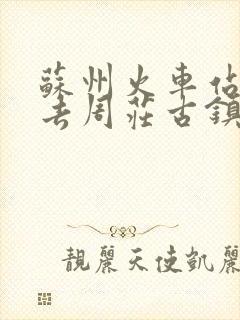 蘇州火車站
去周莊古鎮
靚麗天使凱麗